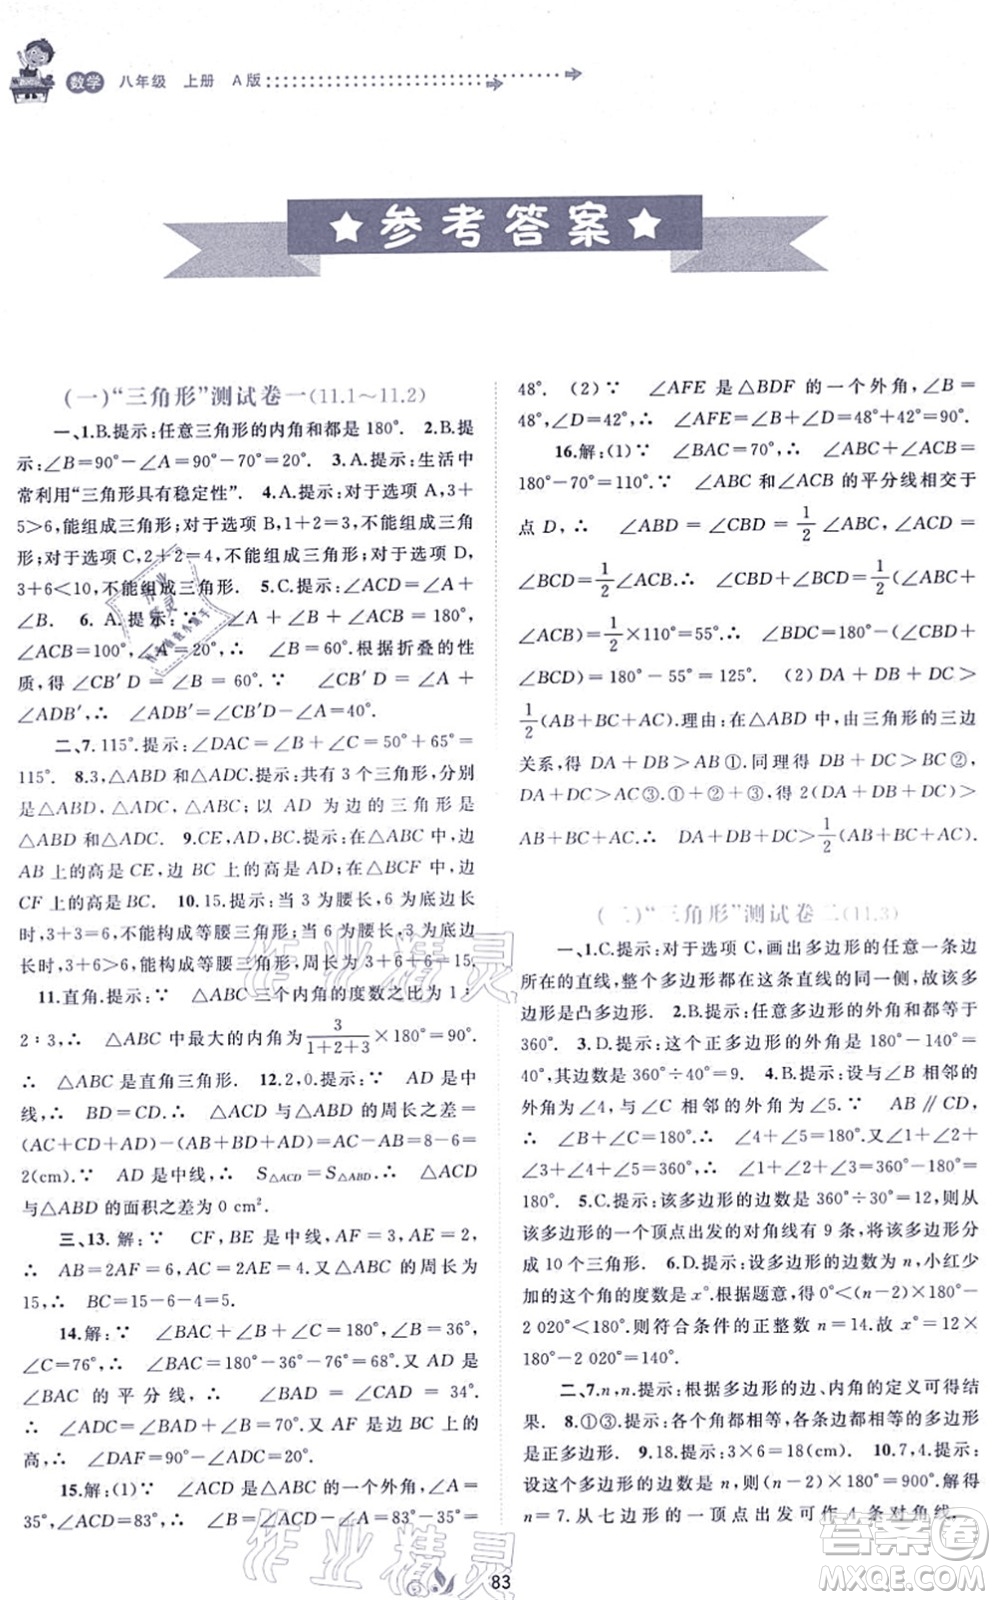 数学 八年级 上册 A版
参考答案
(一)“三角形”测试卷一(11.1～11.2)
一、1.B.提示:任意三角形的内角和都是180°. 2.B.提
示:∠B=90°-∠A=90°-70°=20°. 3.A.提示:生活中
常利用“三角形具有稳定性”. 4.A.提示:对于选项 A,3+
5>6,能组成三角形;对于选项 B,1+2=3,不能组成三角
形;对于选项 C,2+2=4,不能组成三角形;对于选项 D,
3+6<10,不能组成三角形. 5.C.提示:∠ACD=∠A+
∠B. 6.A.提示:∵ ∠A+∠B+∠ACB=180°,
∠ACB=100°,∠A=20°,∴ ∠B=60°.根据折叠的性
质,得 ∠CB′D=∠B=60°.∵ ∠CB′D=∠A+
∠ADB′,∴ ∠ADB′=∠CB′D-∠A=40°.
二、7. 115°.提示:∠DAC=∠B+∠C=50°+65°=
115°. 8.3,△ABD 和△ADC.提示:共有 3 个三角形,分别
是△ABD、△ADC、△ABC;以 AD 为边的三角形是
△ABD 和△ADC. 9.CE,AD,BC.提示:在△ABC 中,边
AB 上的高是 CE,边 BC 上的高是 AD;在△BCF 中,边
CF 上的高是 BC. 10.15.提示:当 3 为腰长,6 为底边长
时,3+3=6,不能构成等腰三角形;当 6 为腰长,3 为底边
长时,3+6>6,能构成等腰三角形,周长为 3+6+6=15.
11.直角.提示:∵ △ABC 三个内角的度数之比为 1:
2:3,∴ △ABC 中最大的内角为3/(1+2+3)×180°=90°.
∴ △ABC 是直角三角形. 12.2,0.提示:∵ AD 是中
线,∴ BD=CD.∴ △ACD 与△ABD 的周长之差=
(AC+CD+AD)-(AB+BD+AD)=AC-AB=8-6=
2(cm).∵ AD 是中线,∴ S△ADC=S△ABD.∴ △ACD
与△ABD 的面积之差为 0 cm².
三、13. 解:∵ CF,BE 是中线,AF=3,AE=2,
∴ AB=2AF=6,AC=2AE=4.又∵ △ABC 的周长为
15,∴ BC=15-6-4=5.
14.解:∵ ∠BAC+∠B+∠C=180°,∠B=36°,
∠C=76°,∴ ∠BAC=180°-36°-76°=68°.又∵ AD是
∠BAC 的平分线,∴ ∠BAD=∠CAD=34°.
∴ ∠ADC=∠BAD+∠B=70°.又∵ AF是边 BC 上的
高,∴ ∠DAF=90°-∠ADC=20°.
15.解:(1)∵ ∠ACD 是△ABC 的一个外角,∠A=
35°,∠ACD=83°,∴ ∠B=∠ACD-∠A=83°-35°=
48°. (2)∵ ∠AFE 是△BDF 的一个外角,∠B=
48°,∠D=42°,∴ ∠AFE=∠B+∠D=48°+42°=90°.
16.解:(1)∵ ∠BAC=70°,∴ ∠ABC+∠ACB=
180°-70°=110°.∵ ∠ABC 和∠ACB的平分线相交于
点 D,∴ ∠ABD=∠CBD=1/2∠ABC,∠ACD=
∠BCD=1/2∠ACB.∴ ∠CBD+∠BCD=1/2(∠ABC+
∠ACB)=1/2×110°=55°.∴ ∠BDC=180°-(∠CBD+
∠BCD)=180°-55°=125°. (2)DA+DB+DC>
1/2(AB+BC+AC).理由:在△ABD 中,由三角形的三边
关系,得 DA+DB>AB①.同理,可得 DB+DC>BC②,
DA+DC>AC③.①+②+③,得 2(DA+DB+DC)>
AB+BC+AC.∴ DA+DB+DC>1/2(AB+BC+AC).
(二)“三角形”测试卷二(11.3)
一、1.C.提示:对于选项 C,画出多边形的任意一条边
所在的直线,整个多边形都在这条直线的同一侧,故该多
边形是凸多边形. 2.B.提示:任意多边形的外角和都等于
360°. 3.D.提示:∵ 这个正多边形的每个外角都等于
40°,∴ 其边数是360°÷40°=9. 4.B.提示:设与∠B 相邻的
外角为∠4,与∠C 相邻的外角为∠5.∵ AB∥CD,
∴ ∠B+∠C=180°.∴ ∠4+∠5=180°.又∵ ∠1+∠2+
∠3+∠4+∠5=360°,∴ ∠1+∠2+∠3=360°-180°=
180°. 5.C.提示:该多边形的边数是360°÷30°=12,则从
该多边形的一个顶点出发的对角线有 9 条,将该多边形分
成 10 个三角形. 6.D.提示:设多边形的边数为 n,小红少
加的这个角的度数是 x°.根据题意,得 0°<(n-2)×180°-
2 020°<180°,则符合条件的正整数 n=14.故 x°=12×
180°-2 020°=140°.
二、7.n,n.提示:根据多边形的边、内角的定义可得结
果. 8.①③.提示:各个角都相等,各条边都相等的多边形
是正多边形. 9.18.提示:3×6=18(cm). 10.7,4.提示:
设这个多边形的边数是 n,则(n-2)×180°=900°.解得
n=7.从七边形的一个顶点出发可作 4 条对角线.
83
作业精灵
作业精灵
答案圈
MXQE.COM